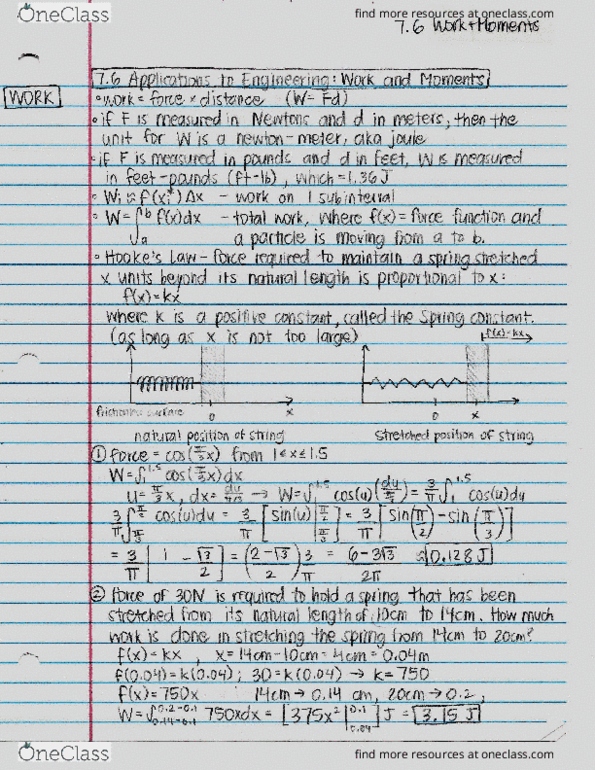 OneClass
find more resources at oneclass.com
7.6 Work+Moments
WORK
7.6 Applications to Engineering: Work and Moments
• work = force × distance (W= Fd)
• if F is measured in Newtons and d in meters, then the
unit for W is a newton-meter, aka joule
• if F is measured in pounds and d in feet, W is measured
in feet-pounds (ft-lb), which =1.36J
• Wi ≈ f(xi*)Δx - work on 1 subinterval
• W=∫ₐᵇ f(x)dx - total work, where f(x)= force function and
a particle is moving from a to b.
• Hooke's Law - force required to maintain a spring stretched
x units beyond its natural length is proportional to x:
f(x)=kx
where k is a positive constant, called the spring constant.
(as long as x is not too large)
f(x)=kx
frictionless surface 0 x
0 x
natural position of string
stretched position of string
① force = cos(π/3 x) from 1≤x≤1.5
W=∫₁^1.5 cos(π/3 x)dx
u= π/3 x, dx= du/π/3 → W=∫₁^1.5 cos(u)(du/π/3)= 3/π ∫₁^1.5 cos(u)du
3/π ∫π/3^π/2 cos(u)du = 3/π [sin(u)|π/3^π/2] = 3/π [sin(π/2)-sin(π/3)]
= 3/π [1 - √3/2] = (2-√3/2) 3/π = 6-3√3/2π ≈ 0.128 J
② force of 30N is required to hold a spring that has been
stretched from its natural length of 10cm to 14cm. How much
work is done in stretching the spring from 14cm to 20cm?
f(x)=kx , x=14cm-10cm=4cm=0.04m
f(0.04)=k(0.04) ; 30=k(0.04) → k=750
f(x)=750x 14cm→0.14 cm, 20cm→0.2 ,
W=∫0.14-0.1^0.2-0.1 750xdx = [375x²|0.04^0.1] J = 3.15 J
OneClass
find more resources at oneclass.com